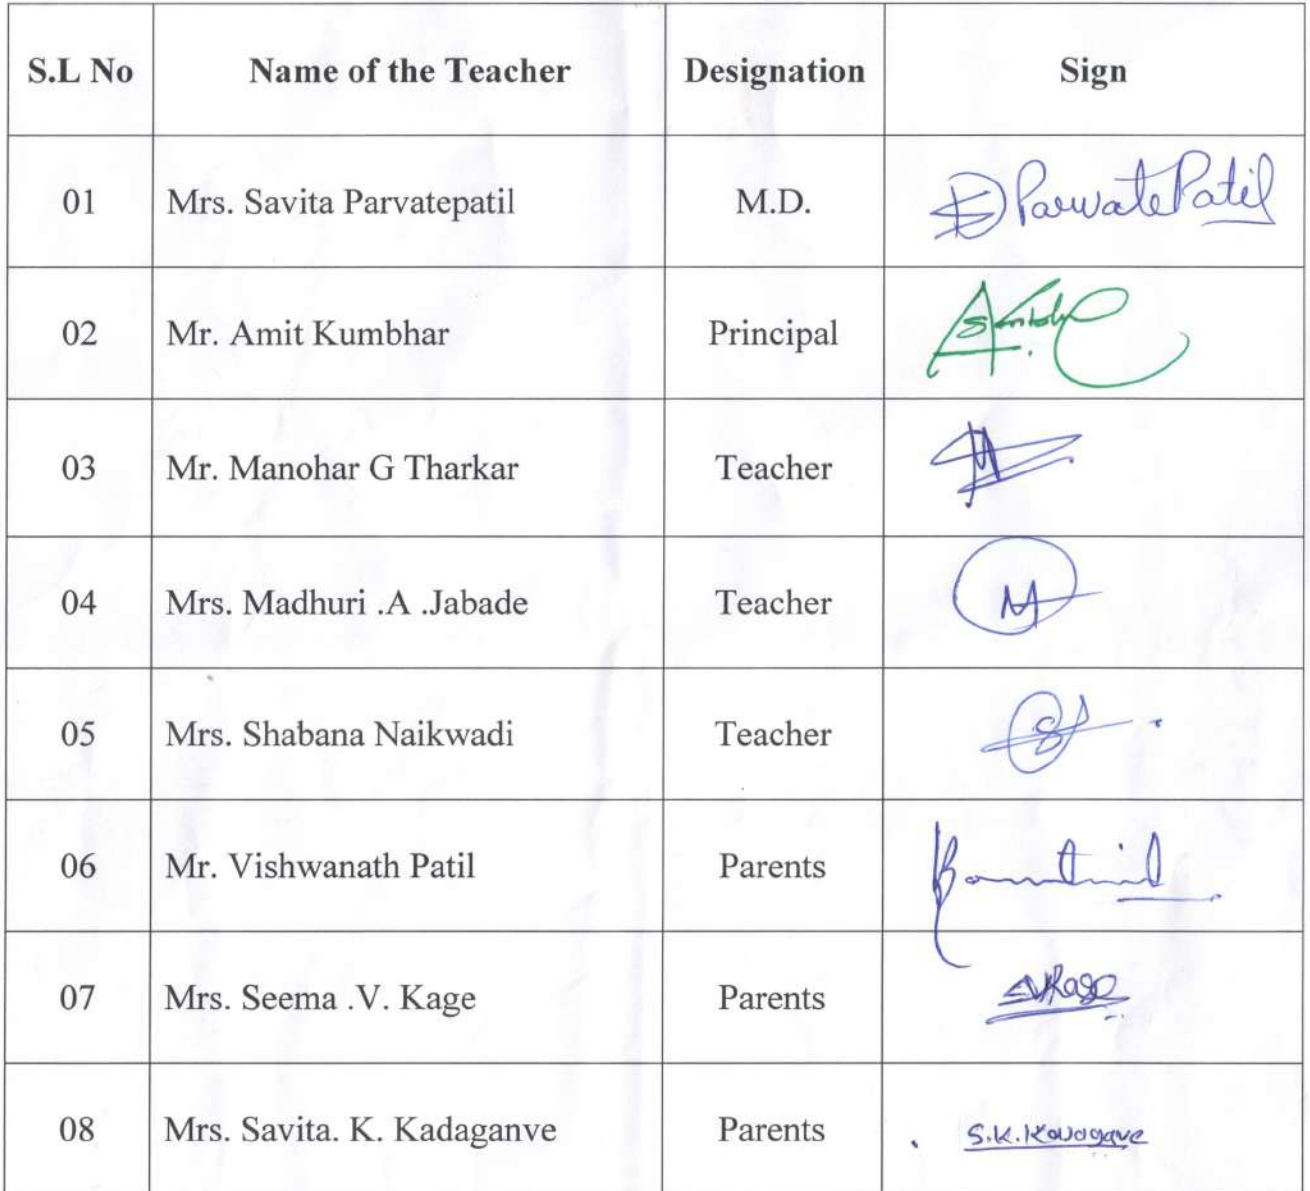 S.L No Name of the Teacher Designation Sign
01 Mrs. Savita Parvatepatil M.D. ParwatePatil
02 Mr. Amit Kumbhar Principal
03 Mr. Manohar G Tharkar Teacher
04 Mrs. Madhuri .A .Jabade Teacher M
05 Mrs. Shabana Naikwadi Teacher S
06 Mr. Vishwanath Patil Parents
07 Mrs. Seema .V. Kage Parents SVKage
08 Mrs. Savita. K. Kadaganve Parents S.K.Kadagave